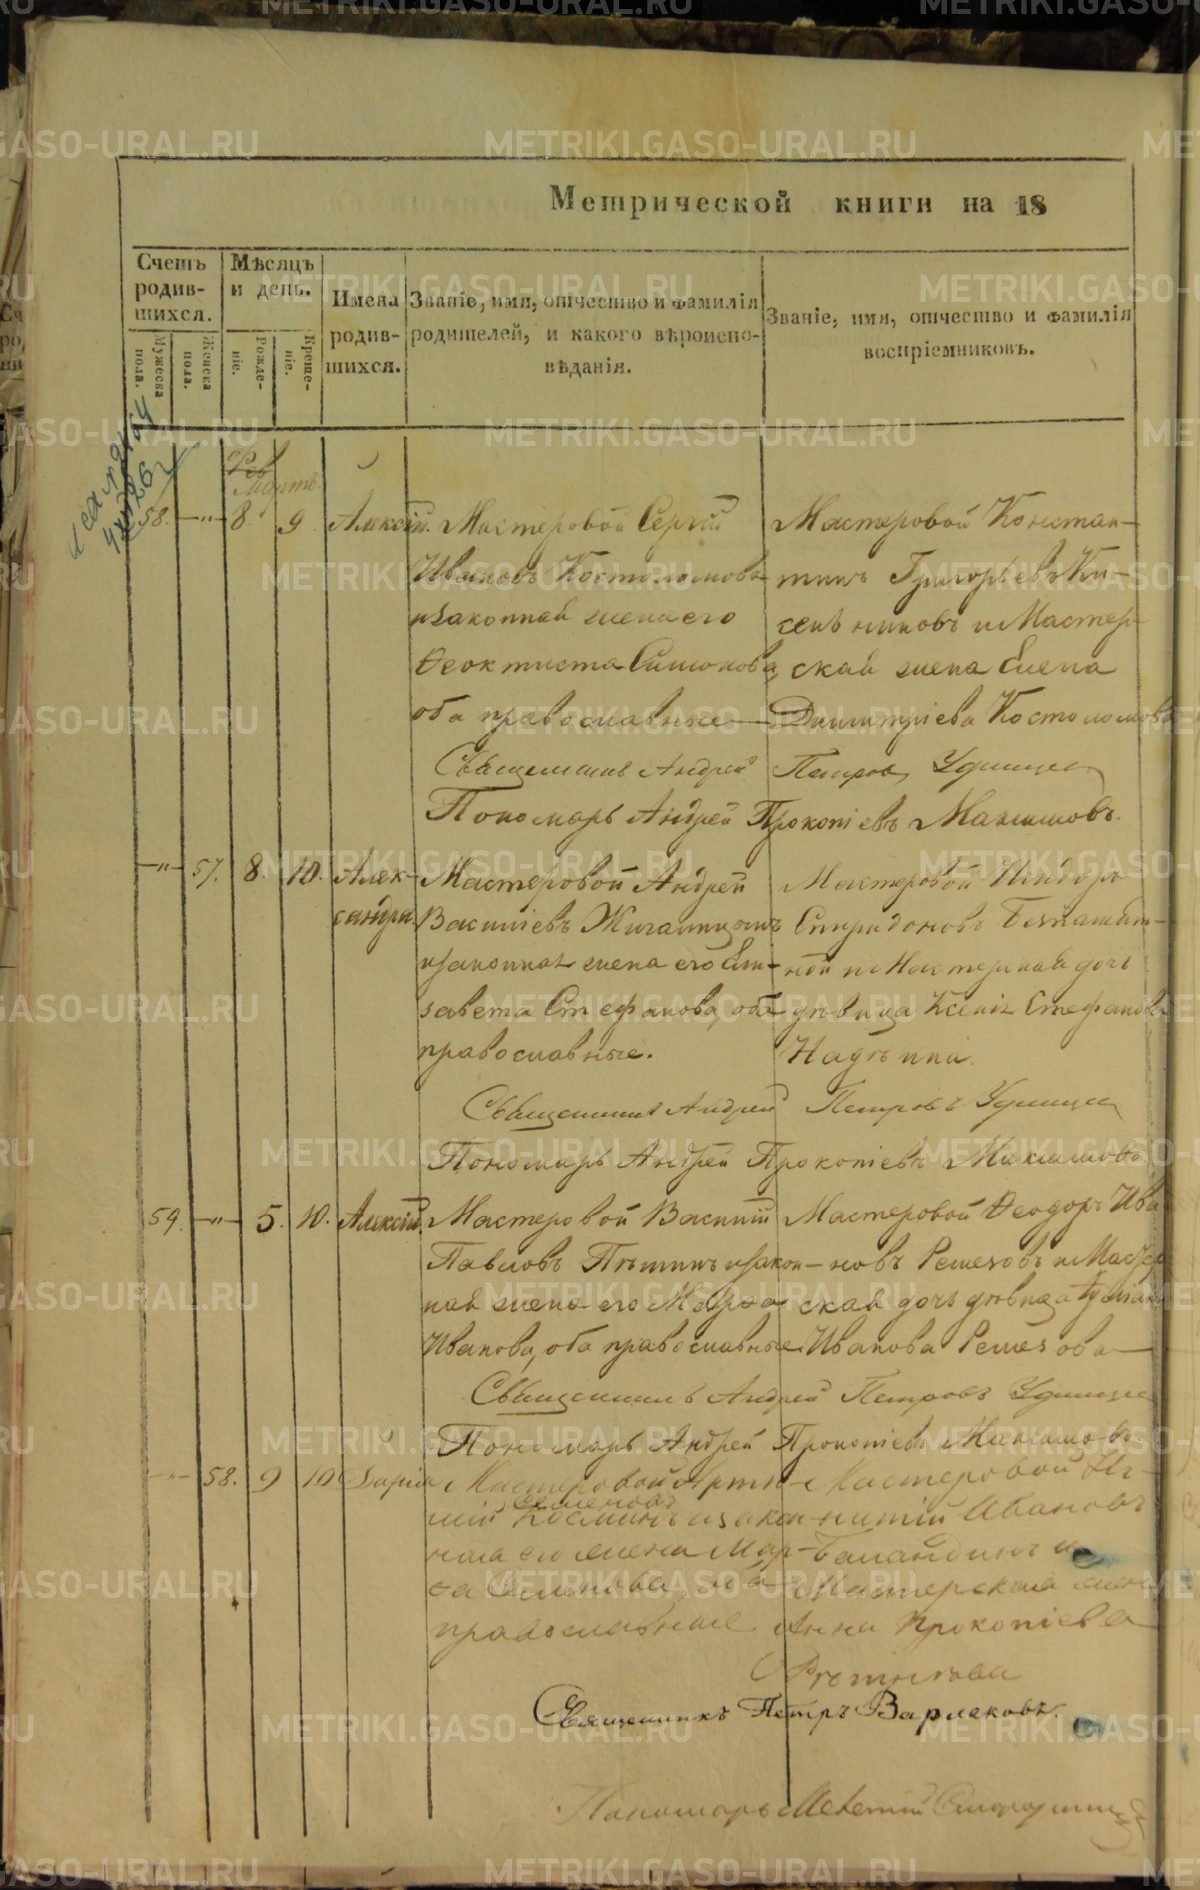 Метрической книги на 18
Счетъ родив-шихся.
Мужеска пола.
Женска пола.
Мѣсяцъ и день.
Рожде-ніе.
Креще-ніе.
Имена родив-шихся.
Званіе, имя, отчество и фамилія родителей, и какого вѣроиспо-вѣданія.
Званіе, имя, отчество и фамилія воспріемниковъ.
Мартъ.
58. —„— 8. 9. Алексій. Мастеровой Сергій
Ивановъ Костоломовъ
и законная жена его
Ѳеоктиста Симонова
оба православные
Мастеровой Констан-
тинъ Григорьевъ Ки-
селѣниковъ и Мастер-
ская жена Елена
Димитріева Костоломова
Священникъ Андрей Петровъ Удинцев
Пономарь Андрей Прокопіевъ Максимовъ.
—„— 57. 8. 10. Алек-
сандра
Мастеровой Андрей
Василіевъ Жигалицынъ
и законная жена его Ели-
завета Стефанова, оба
православные.
Мастеровой Исидоръ
Спиридоновъ
ной и Мастерская дочь
дѣвица Ксенія Стефанова
Священникъ Андрей Петровъ Удинцев
Пономарь Андрей Прокопіевъ Максимовъ
59. —„— 5. 10. Алексій. Мастеровой Василій
Павловъ Пѣтинъ и закон-
ная жена его Марѳа
Иванова, оба православные
Мастеровой Ѳеодоръ Ива
новъ Ремезовъ и Масте
ская дочь дѣвица
Иванова Ремезова
Священникъ Андрей Петровъ Удинцев
Пономарь Андрей Прокопіевъ Максимовъ
—„— 58. 9 10 Дарія Мастеровой Арте-
мій Косминъ и закон
Семеновъ
ная его жена Мар-
ѳа Семенова оба
православные
Мастеровой Иг-
натій Ивановъ
Баландинъ и
Мастерская жена
Анна Прокопіева
Священникъ Петръ Варлаковъ.
Пономарь
METRIKI.GASO-URAL.RU